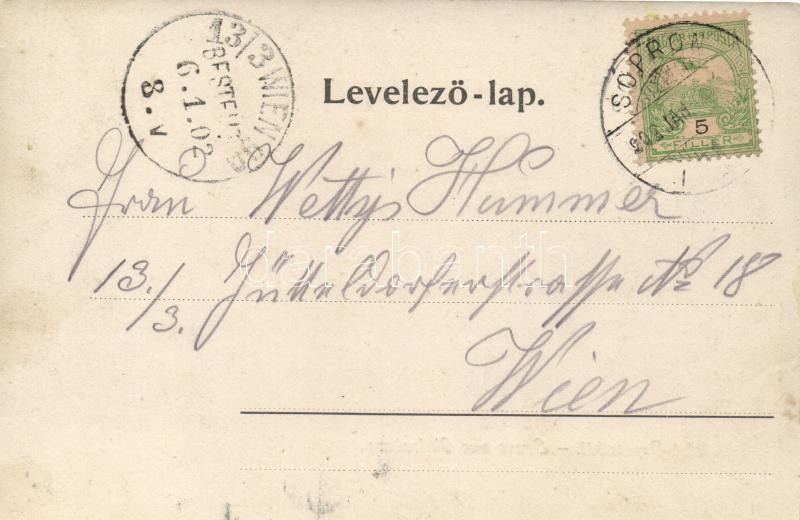 13/3 WIEN
BESTELLT
6.1.02
8.V
Levelező-lap.
SOPRON
MAGYAR KIR. POSTA
5
FILLÉR
Frau Wettys Hummer
13./3. Hütteldorferstrasse No 18
Wien
darabanth